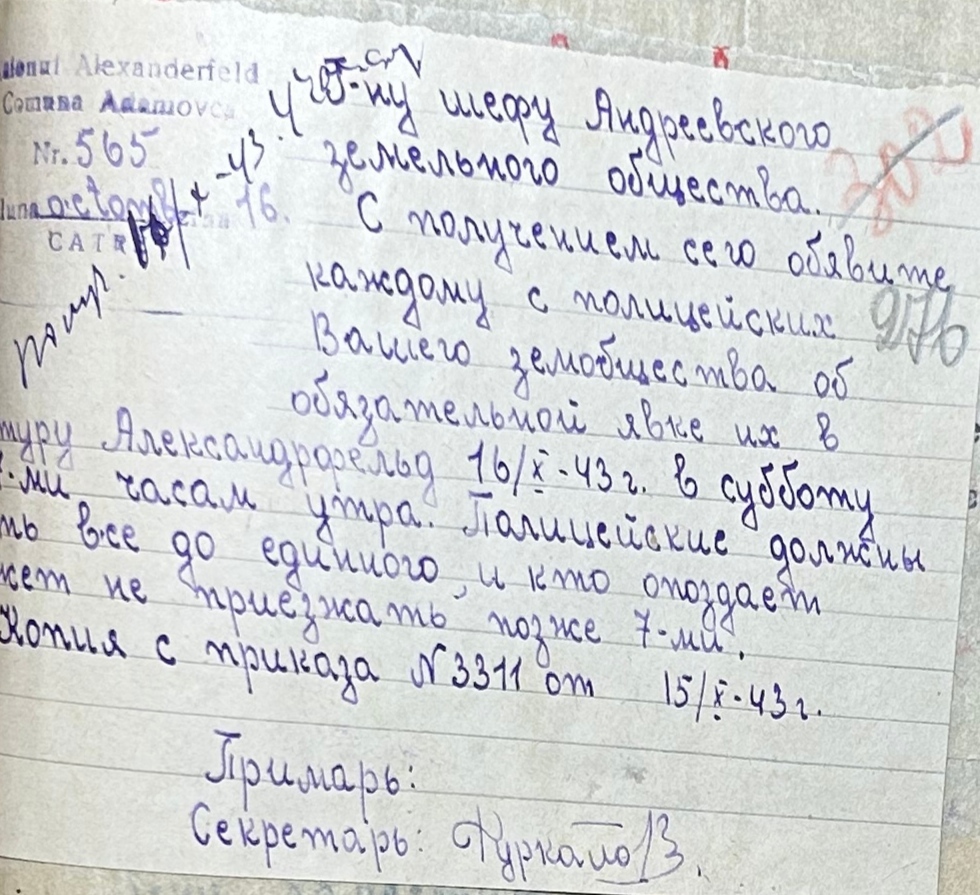 Alexanderfeld
Comuna Adamovca
Nr. 565
16.
-ну шефу Андреевского
земельного общества.
С получением сего обявите
каждому с полицейских
976
Вашего земобщества об
обязательной явке их в
туру Александрфельд 16/X-43 г. в субботу
-ми часам утра. Палицейские должны
ть все до единого, и кто опоздает
жет не приезжать позже 7-ми.
Копия с приказа N 3311 от 15/X-43 г.
Примарь:
Секретарь: